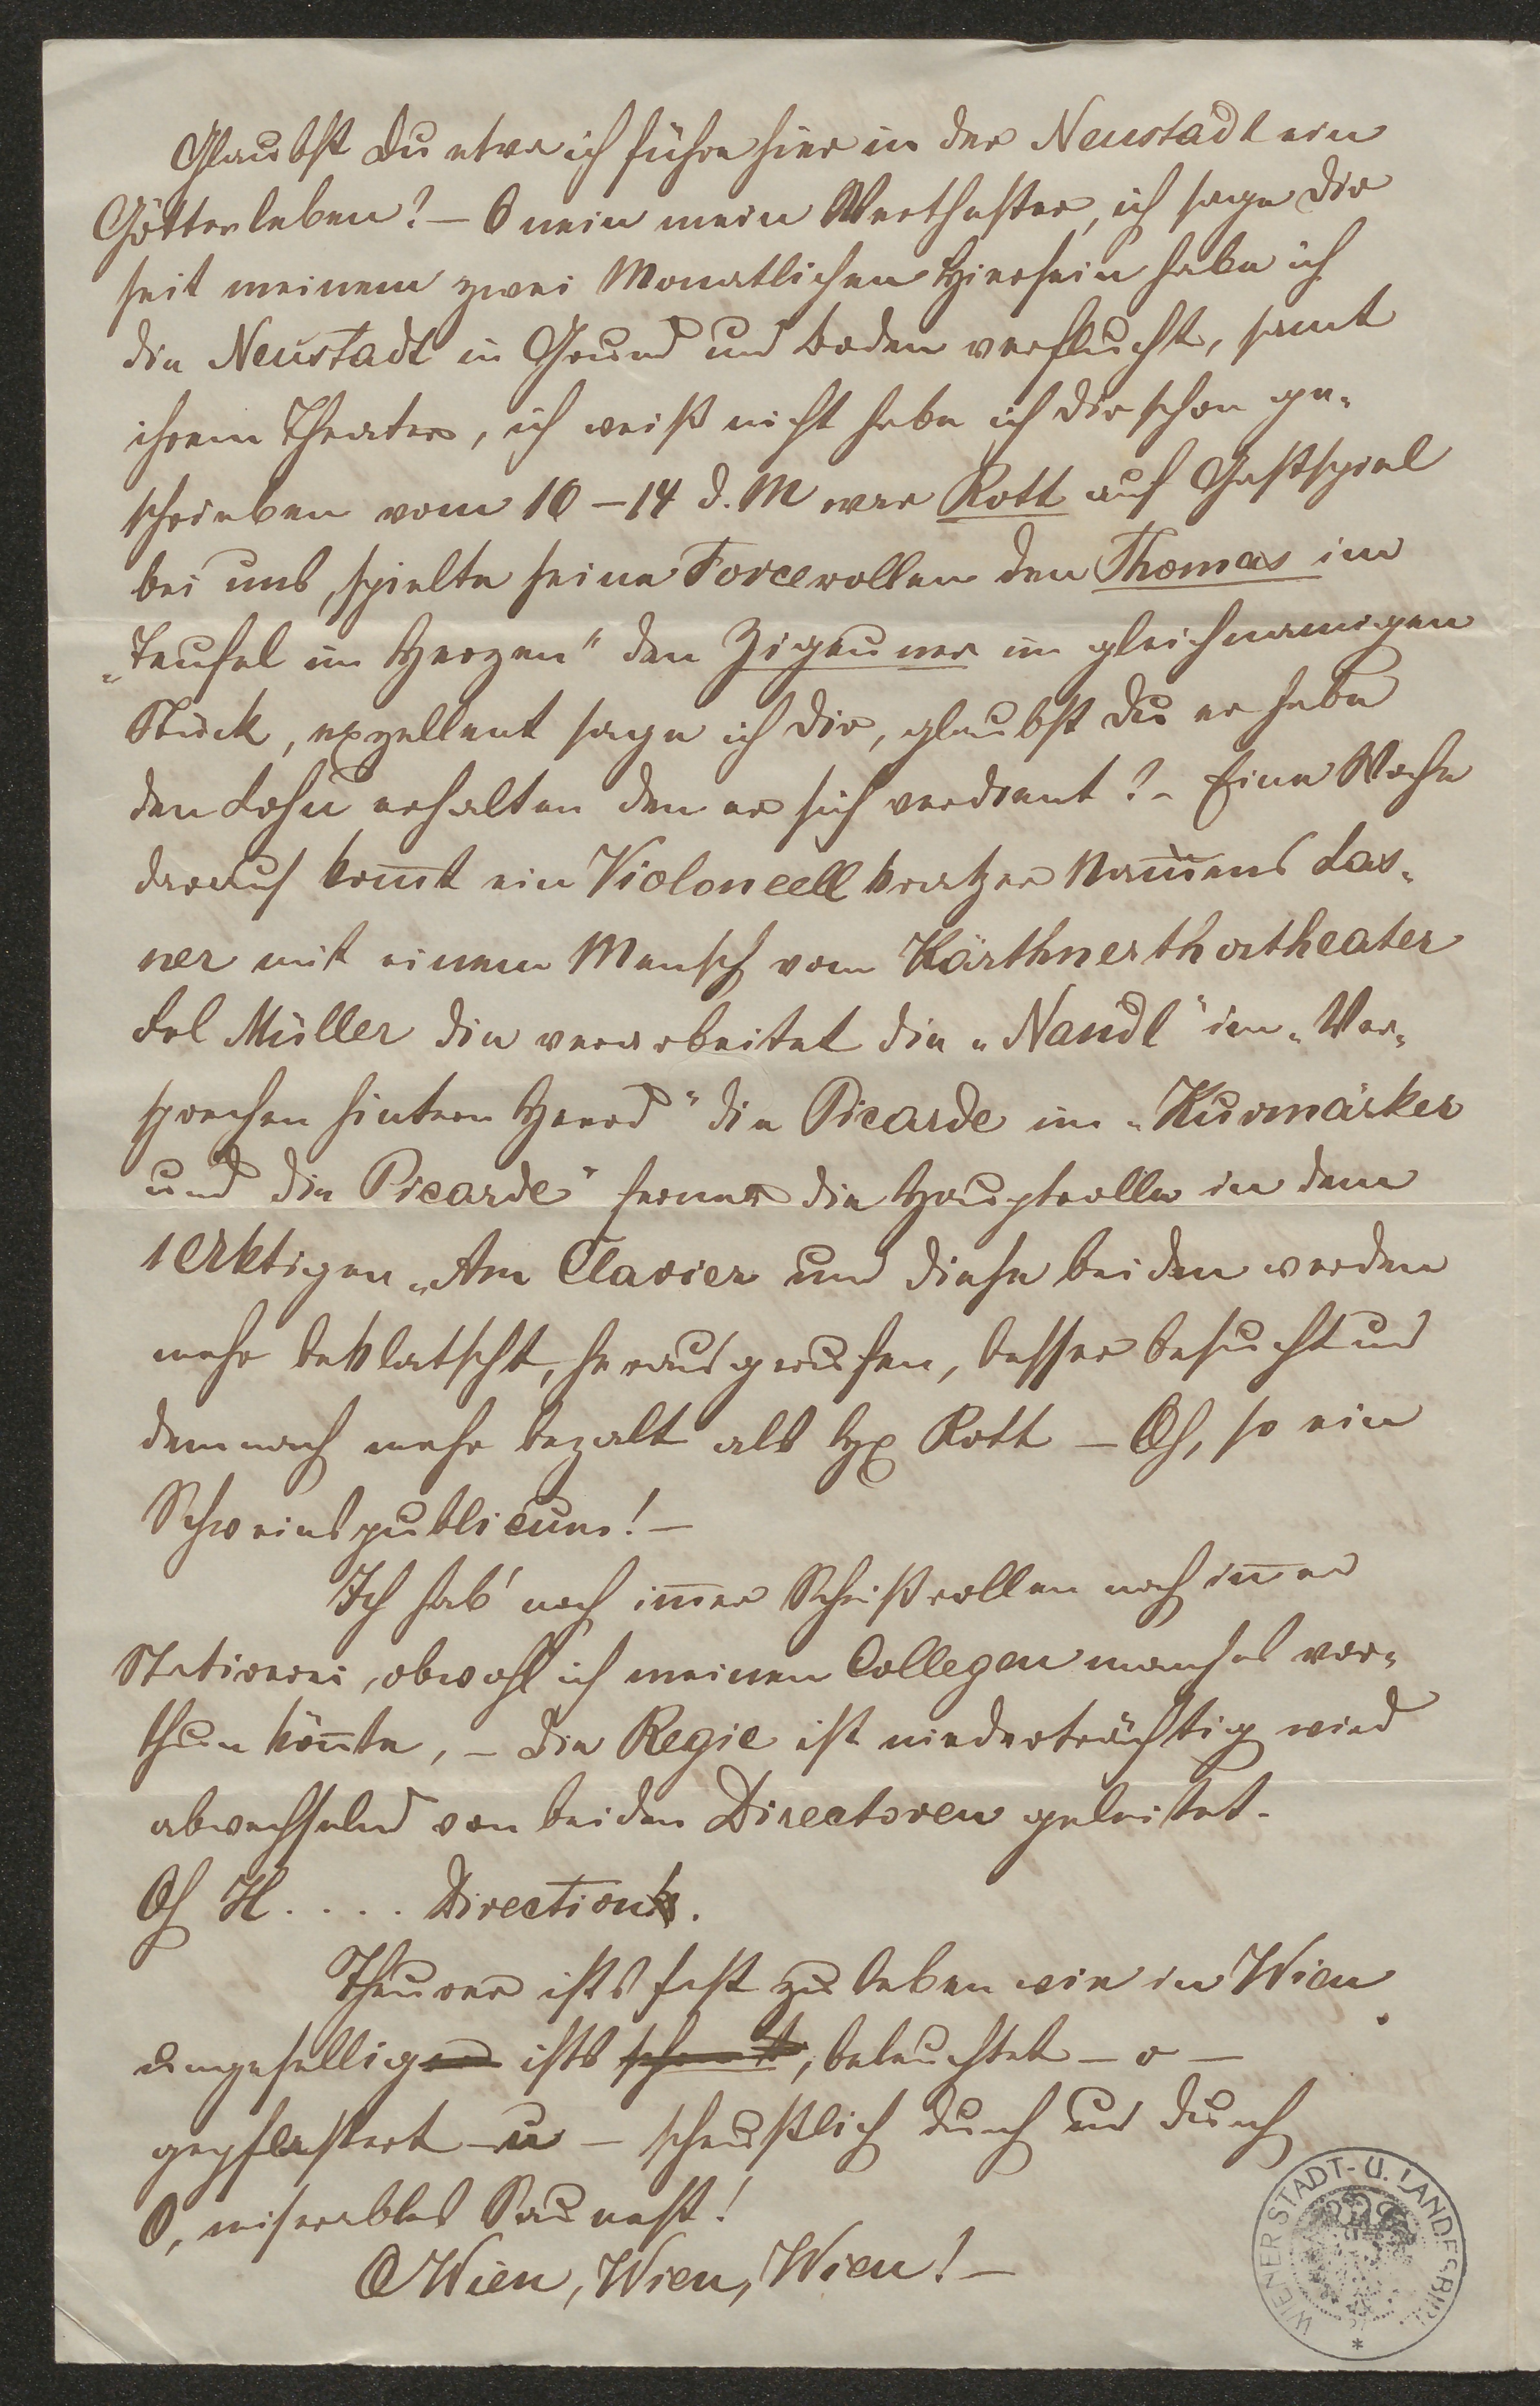 Glaubst Du etwa ich führe hier in der Neustadt ein
Götterleben? – O nein mein Werthester, ich sage Dir
seit meinem zwei Monatlichen Hiersein habe ich
die Neustadt in Grund und Boden verflucht, samt
ihrem Theater, ich weiß nicht habe ich Dir schon ge-
schrieben vom 10–14 d. M war Rott auf Gastspiel
bei uns, spielte seine Forcerollen den Thomas im
„Teufel im Herzen" den Zigeuner im gleichnamigen
Stück, exzellent sage ich Dir, glaubst Du er habe
den Lohn erhalten den er sich verdient? – Eine Woche
darauf kom̅t ein Violoncell kratzer Nam̅ens Las-
ner mit einem Mensch vom Kärthnerthortheater
Frl Müller die verarbeitet die „Nandl" im „Ver-
sprechen hintern Heerd" die Picarde im „Kurmärker
und die Picarde" ferner die Hauptrolle in dem
1 Aktigen „Am Clavier und diese beiden werden
mehr beklatscht, herausgerufen, besser besucht und
demnach mehr bezalt als H Rott – Oh, so ein
Schweinspublicum! –
Ich hab' noch im̅er Scheißrollen noch im̅er
Statirerei, obwohl ich meinen Collegen manches vor-
thun kön̅te, – Die Regie ist niederträchtig wird
abwechselnd von beiden Directoren geleitet.
Oh H. . . . Direction.
Theurer ists fast zu leben wie in Wien
ungesellig ists, beleuchtet – o –
gepflastert – u – scheußlich durch und durch
O, miserables Saunest!
O Wien, Wien, Wien! –
WIENER STADT- U. LANDESBIBL.